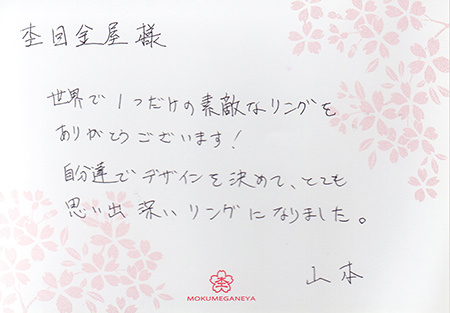 杢目金屋様
世界で1つだけの素敵なリングを
ありがとうございます!
自分達でデザインを決めて、とても
思い出深いリングになりました。
山本
MOKUMEGANEYA